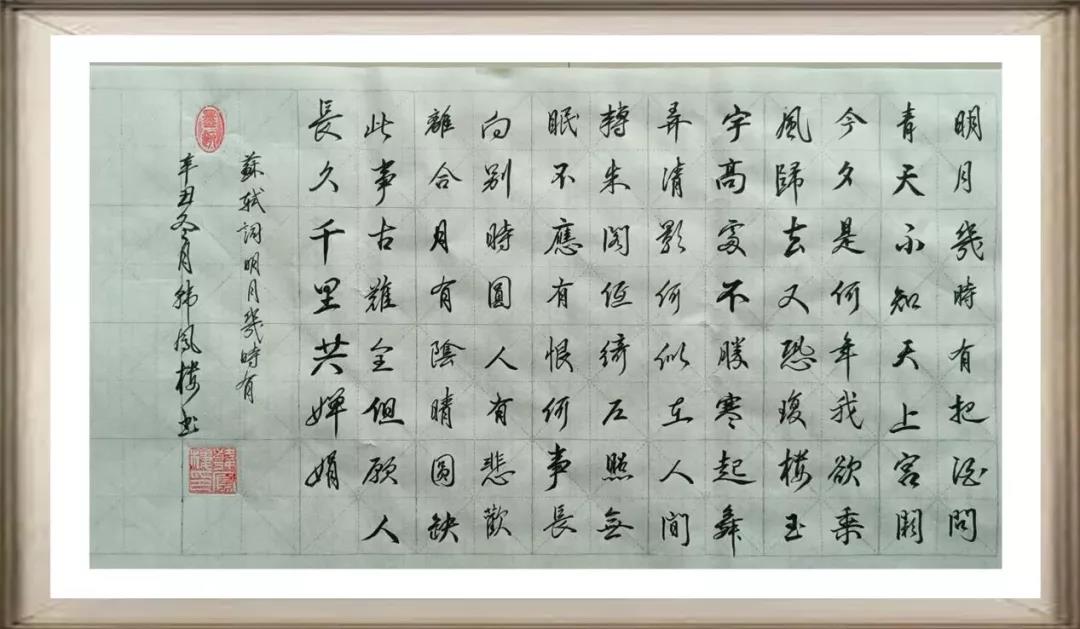 明月幾時有把酒問
青天不知天上宮闕
今夕是何年我欲乘
風歸去又恐瓊樓玉
宇高處不勝寒起舞
弄清影何似在人間
轉朱閣低綺户照無
眠不應有恨何事長
向別時圓人有悲歡
離合月有陰晴圓缺
此事古難全但願人
長久千里共嬋娟
蘇軾詞明月幾時有
辛丑冬月韩鳳樓书
韓鳳樓印